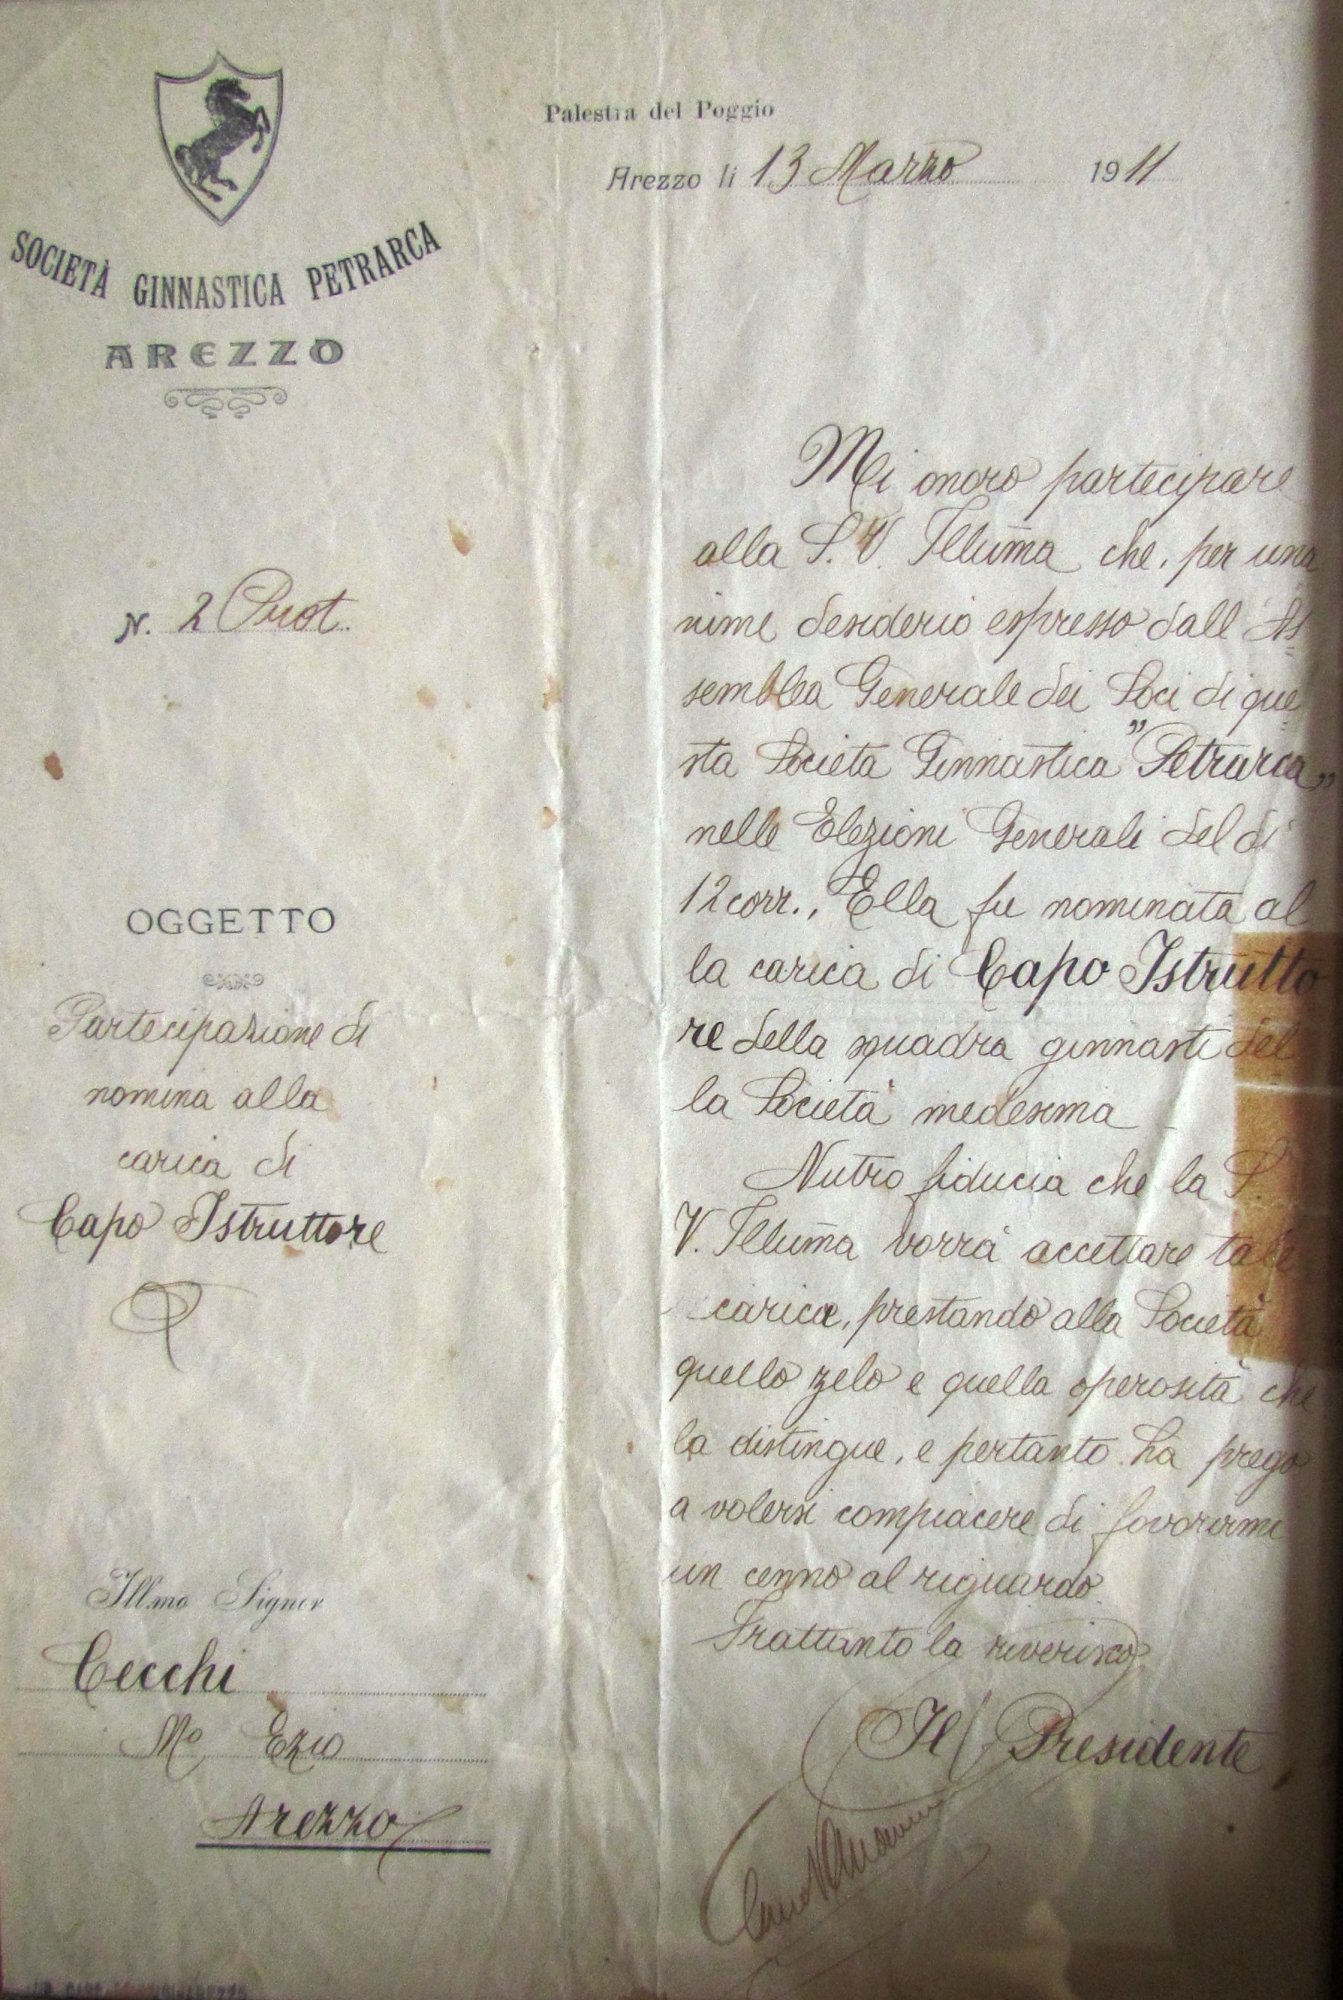 SOCIETÀ GINNASTICA PETRARCA
AREZZO
Palestra del Poggio
Arezzo li 13 Marzo 1911
N. 2 Prot.
OGGETTO
Partecipazione di
nomina alla
carica di
Capo Istruttore
Ill.mo Signor
Cecchi
Mo Ezio
Arezzo
Mi onoro partecipare
alla S. V. Illuma che, per una
nime desiderio espresso dall As
semblea Generale dei Soci di que
sta Società Ginnastica "Petrarca"
nelle Elezioni Generali del di
12 corr., Ella fu nominata al
la carica di Capo Istrutto
re della squadra ginnasti del
la Società medesima
Nutro fiducia che la S.
V. Illuma vorrà accettare tale
carica, prestando alla Società
quello zelo e quella operosità che
la distingue, e pertanto La prego
a volersi compiacere di favorirmi
un cenno al riguardo.
Frattanto la riverisco
Il Presidente